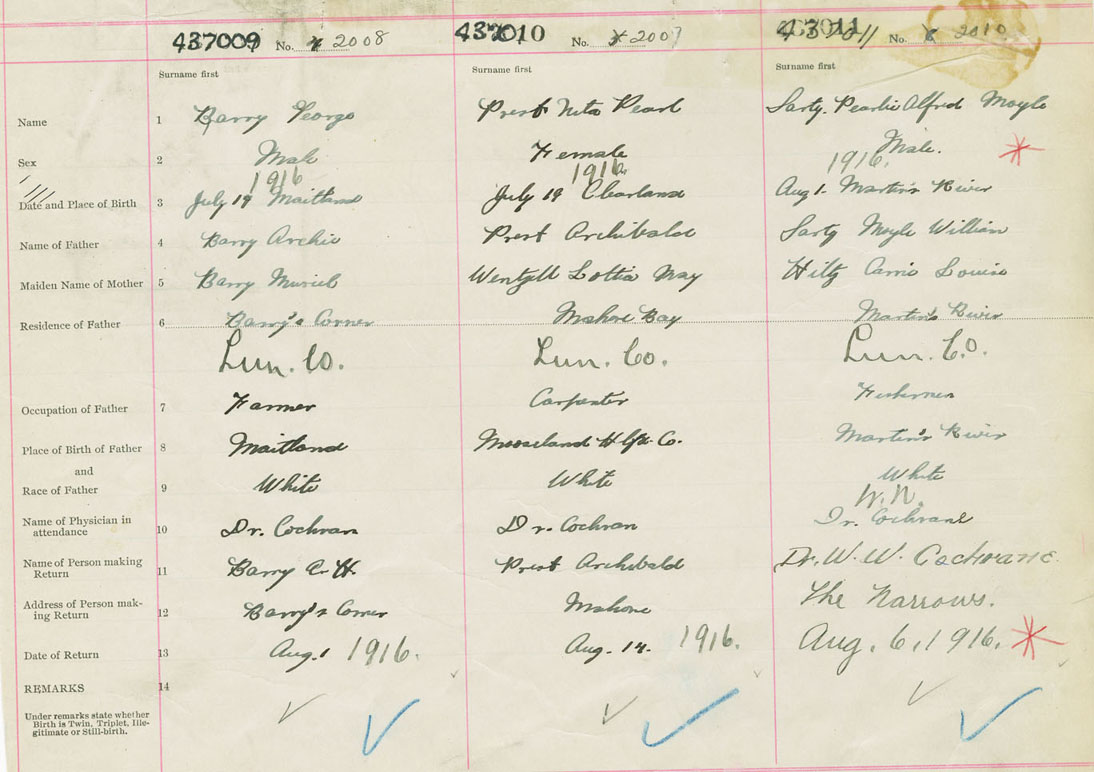 437009 No. 2008 437010 No. 2007 437011 No. 2010
Surname first Surname first Surname first
Name 1 Barry George Prest Nita Pearl Sarty. Pearlie Alfred Moyle
Sex 2 Male Female Male.
1916 1916. 1916.
Date and Place of Birth 3 July 19 Maitland July 19 Clearland Aug 1. Martin's River
Name of Father 4 Barry Archie Prest Archibald Sarty Moyle William
Maiden Name of Mother 5 Barry Muriel Wentzell Lottia May Hiltz Carrie Louise
Residence of Father 6 Barry's Corner Mahone Bay Martin's River
Lun. Co. Lun. Co. Lun. Co.
Occupation of Father 7 Farmer Carpenter Fisherman
Place of Birth of Father 8 Maitland Mooseland Hlfx. Co. Martin's River
and
Race of Father 9 White White White
W.N.
Name of Physician in
attendance 10 Dr. Cochran Dr. Cochran Dr. Cochrane
Name of Person making
Return 11 Barry A. H. Prest Archibald Dr. W. W. Cochrane.
Address of Person mak-
ing Return 12 Barry's Corner Mahone The Narrows.
Date of Return 13 Aug. 1 1916. Aug. 14. 1916. Aug. 6, 1916.
REMARKS 14
Under remarks state whether
Birth is Twin, Triplet, Ille-
gitimate or Still-birth.